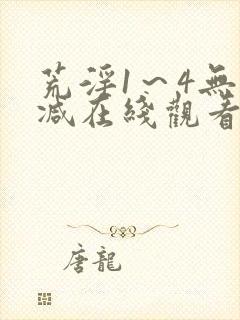 荒淫1~4無
減在綫觀看
唐龍